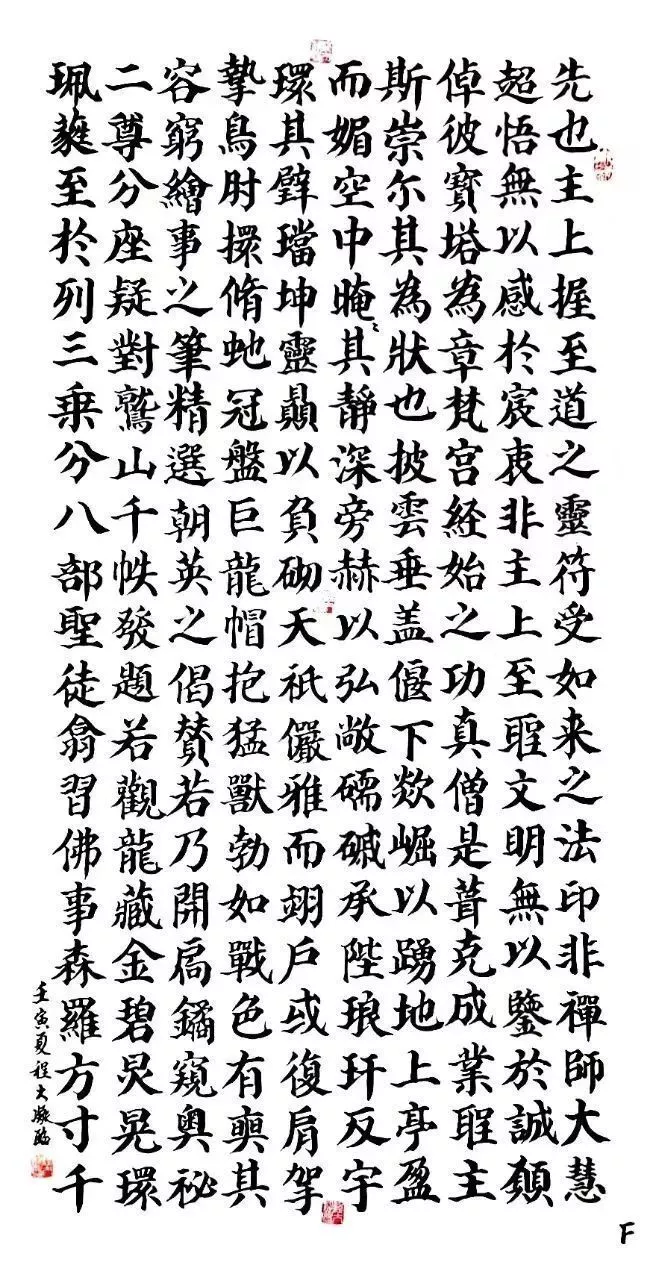 先也主上握至道之靈符受如来之法印非禪師大慧
超悟無以感於宸衷非主上至聖文明無以鑒於誠願
倬彼寶塔為章梵宫経始之功真僧是葺克成業聖主
斯崇尔其為狀也披雲垂盖偃下欻崛以踴地上亭盈
而媚空中晻〻其靜深旁赫以弘敞礝磩承陛琅玕反宇
環其璧璫坤靈贔以負砌天祇儼雅而翊戶或復肩挐
摯鳥肘擐脩虵冠盤巨龍帽抱猛獸勃如戰色有奭其
容窮繪事之筆精選朝英之偈贊若乃開扃鐍窺奧祕
二尊分座疑對鷲山千帙發題若觀龍藏金碧炅晃環
珮蕤至於列三乗分八部聖徒翕習佛事森羅方寸千
壬寅夏程大凝臨
F